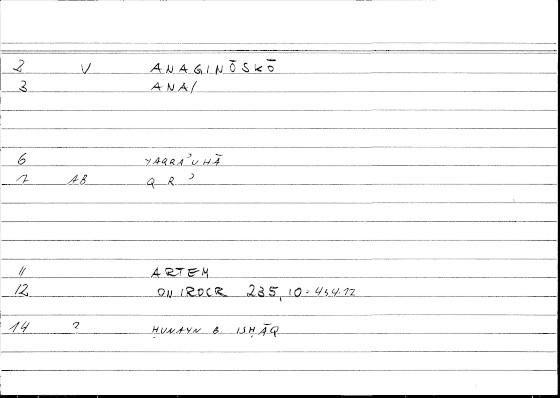 2 V ANAGINŌSKŌ
3 ANA/
6 YAQRAʾUHĀ
7 AB Q R ʾ
11 ARTEM
12 ONIROCR 235, 10 = 434.12
14 ? ḤUNAYN B. ISḤĀQ